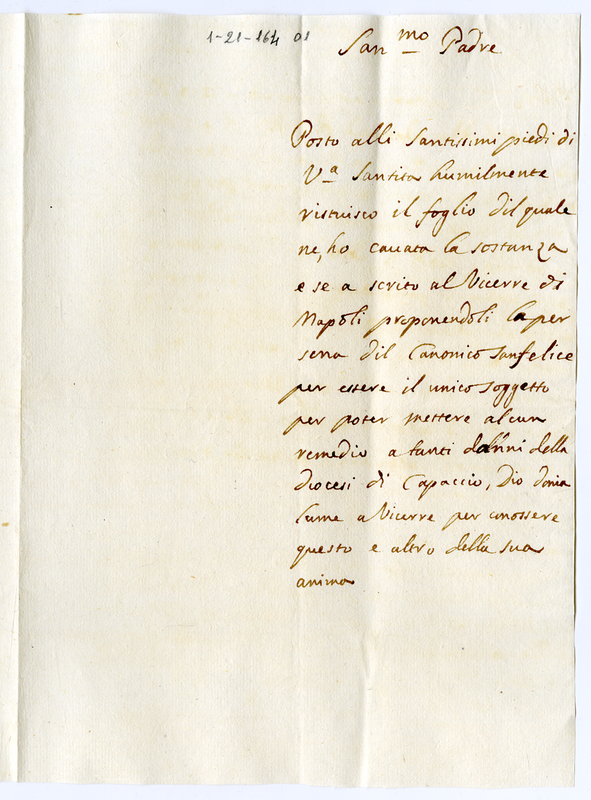 1-21-164 01
San.mo Padre
Posto alli Santissimi piedi di
V.a Santita humilmente
ristuisco il foglio dil quale
ne, ho cauata la sostanza
e se a scrito al Vicerre di
Napoli proponendoli la per
sona dil Canonico Sanfelice
per essere il unico soggetto
per poter mettere alcun
remedio a tanti danni della
diocesi di Capaccio, Dio donia
lume a Vicerre per conossere
questo e altro della sua
anima